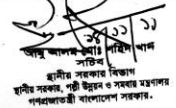 আবু আলম মোঃ শহিদ খান
সচিব
স্থানীয় সরকার বিভাগ
স্থানীয় সরকার, পল্লী উন্নয়ন ও সমবায় মন্ত্রণালয়
গণপ্রজাতন্ত্রী বাংলাদেশ সরকার।